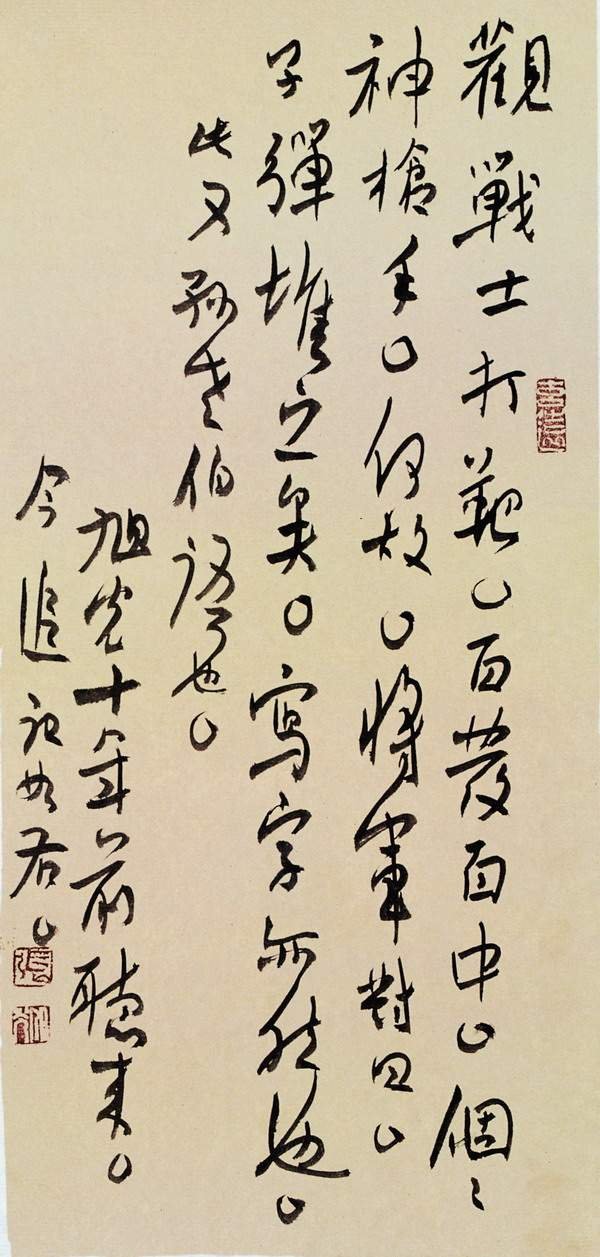 觀戰士打靶。百發百中。個々
神槍手。何故。將軍對曰。
子彈堆之矣。寫字亦然也。
此又孫老伯語也。
旭光十年前聽來。
今追記如右。
張